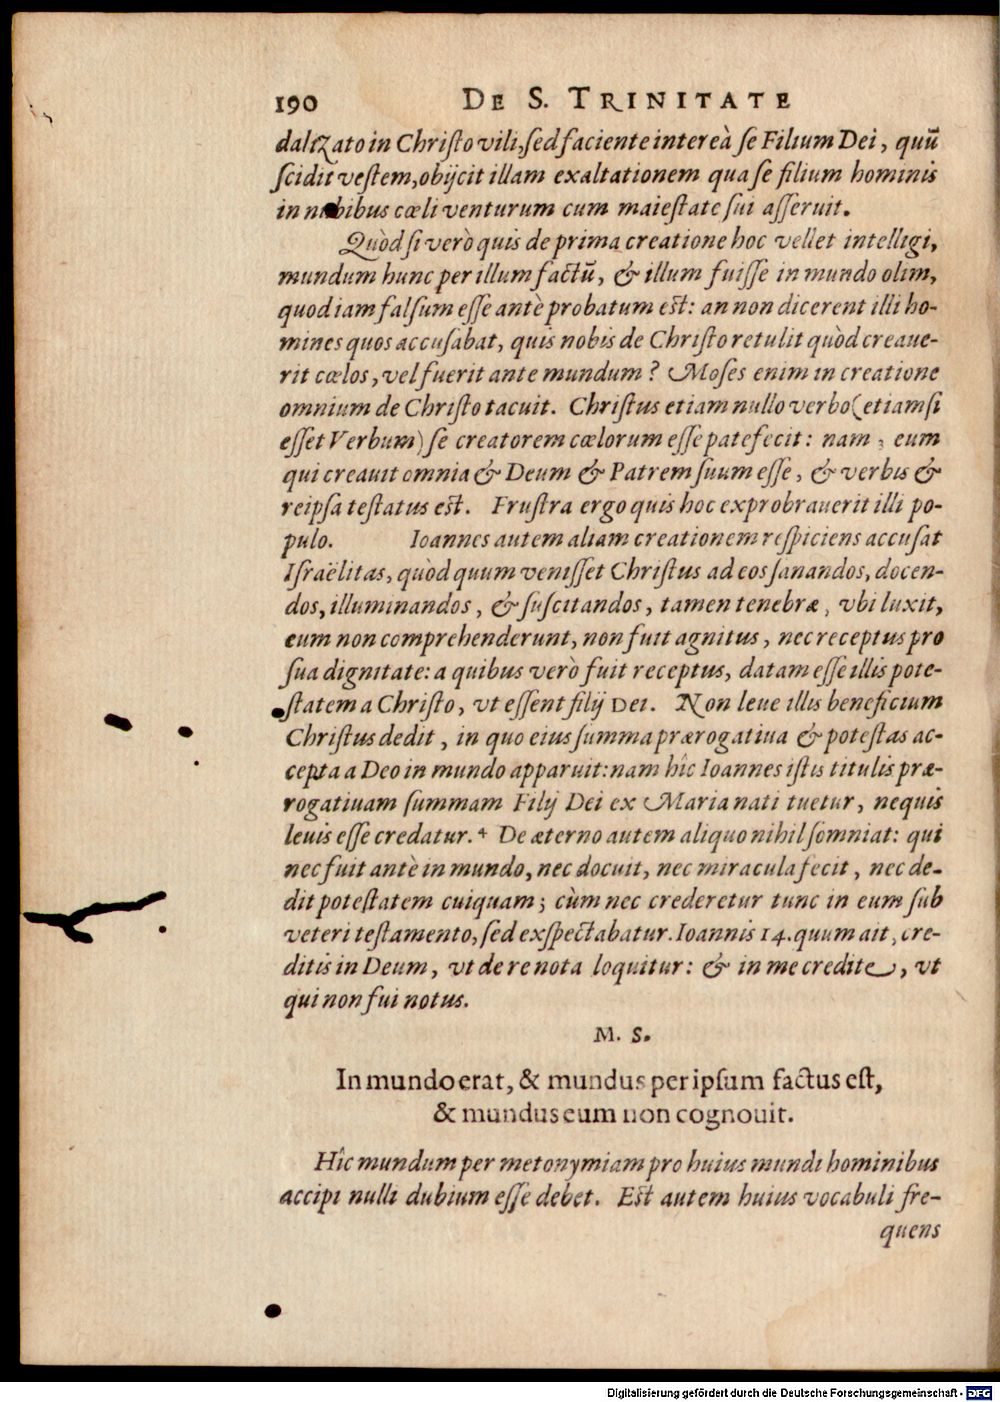 190 DE S. TRINITATE
dalizato in Christo vili, sed faciente intereà se Filium Dei, quū
scidit vestem, obijcit illam exaltationem qua se filium hominis
in nubibus cœli venturum cum maiestate sui asseruit.
Quòd si verò quis de prima creatione hoc vellet intelligi,
mundum hunc per illum factū, & illum fuisse in mundo olim,
quod iam falsum esse antè probatum est: an non dicerent illi ho-
mines quos accusabat, quis nobis de Christo retulit quòd creaue-
rit cœlos, vel fuerit ante mundum? Moses enim in creatione
omnium de Christo tacuit. Christus etiam nullo verbo (etiamsi
esset Verbum) se creatorem cœlorum esse patefecit: nam, eum
qui creauit omnia & Deum & Patrem suum esse, & verbis &
reipsa testatus est. Frustra ergo quis hoc exprobrauerit illi po-
pulo. Ioannes autem aliam creationem respiciens accusat
Israëlitas, quòd quum venisset Christus ad eos sanandos, docen-
dos, illuminandos, & suscitandos, tamen tenebræ, vbi luxit,
eum non comprehenderunt, non fuit agnitus, nec receptus pro
sua dignitate: a quibus verò fuit receptus, datam esse illis pote-
statem a Christo, vt essent filij Dei. Non leue illis beneficium
Christus dedit, in quo eius summa prærogatiua & potestas ac-
cepta a Deo in mundo apparuit: nam hîc Ioannes istis titulis præ-
rogatiuam summam Filij Dei ex Maria nati tuetur, nequis
leuis esse credatur. ⁴ De æterno autem aliquo nihil somniat: qui
nec fuit antè in mundo, nec docuit, nec miracula fecit, nec de-
dit potestatem cuiquam; cùm nec crederetur tunc in eum sub
veteri testamento, sed exspectabatur. Ioannis 14. quum ait, cre-
ditis in Deum, vt de re nota loquitur: & in me credite, vt
qui non fui notus.
M. S.
In mundo erat, & mundus per ipsum factus est,
& mundus eum non cognouit.
Hîc mundum per metonymiam pro huius mundi hominibus
accipi nulli dubium esse debet. Est autem huius vocabuli fre-
quens
Digitalisierung gefördert durch die Deutsche Forschungsgemeinschaft - DFG